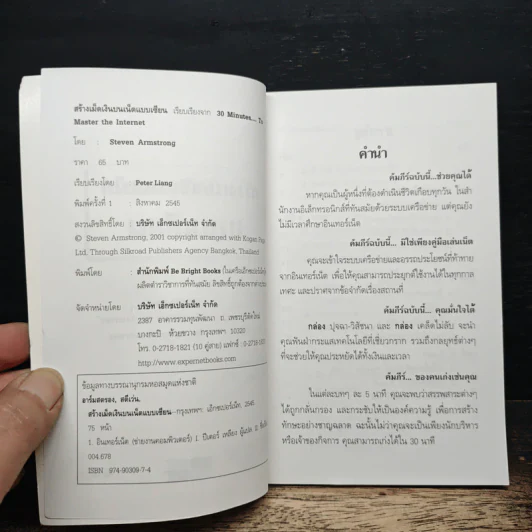 สร้างเม็ดเงินบนเน็ตแบบเซียน เรียบเรียงจาก 30 Minutes... To
Master the Internet
โดย : Steven Armstrong
ราคา 65 บาท
เรียบเรียงโดย : Peter Liang
พิมพ์ครั้งที่ 1 : สิงหาคม 2545
สงวนลิขสิทธิ์โดย : บริษัท เอ็กซเปอร์เน็ท จำกัด
© Steven Armstrong, 2001 copyright arranged with Kogan Page
Ltd. Through Silkroad Publishers Agency Bangkok, Thailand
พิมพ์โดย : สำนักพิมพ์ Be Bright Books (ในเครือเอ็กซเปอร์เน็ท)
ผลิตตำราวิชาการที่ทันสมัย ลิขสิทธิ์ถูกต้องจากต่างประเทศ
จัดจำหน่ายโดย : บริษัท เอ็กซเปอร์เน็ท จำกัด
2387 อาคารรวมทุนพัฒนา ถ. เพชรบุรีตัดใหม่
บางกะปิ ห้วยขวาง กรุงเทพฯ 10320
โทร. 0-2718-1821 (10 คู่สาย) แฟกซ์ : 0-2718-1
http://www.expernetbooks.com
ข้อมูลทางบรรณานุกรมหอสมุดแห่งชาติ
อาร์มสตรอง, สตีเว่น.
สร้างเม็ดเงินบนเน็ตแบบเซียน--กรุงเทพฯ: เอ็กซเปอร์เน็ท, 2545.
75 หน้า
1. อินเทอร์เน็ต (ข่ายงานคอมพิวเตอร์) I. ปีเตอร์ เหลียง, ผู้แปล II.
004.678
ISBN 974-90309-7-4
คำนำ
คัมภีร์ฉบับนี้...ช่วยคุณได้
หากคุณเป็นผู้หนึ่งที่ต้องดำเนินชีวิตเกือบทุกวัน ในสำ
นักงานอิเล็กทรอนิกส์ที่ทันสมัยด้วยระบบเครือข่าย แต่คุณยัง
ไม่มีเวลาศึกษาอินเทอร์เน็ต
คัมภีร์ฉบับนี้... มิใช่เพียงคู่มือเล่นเน็ต
คุณจะเข้าใจระบบเครือข่ายและอรรถประโยชน์ที่ท้าทาย
จากอินเทอร์เน็ต เพื่อให้คุณสามารถประยุกต์ใช้งานได้ในทุกกาล
เทศะ และปราศจากข้อจำกัดเรื่องสถานที่
คัมภีร์ฉบับนี้... คุณมั่นใจได้
กล่อง ปุจฉา-วิสัชนา และ กล่อง เคล็ดไม่ลับ จะนำ
คุณฟันฝ่ากระแสเทคโนโลยีที่เชี่ยวกราก รวมถึงกลยุทธ์ต่างๆ
ที่จะช่วยให้คุณประหยัดได้ทั้งเงินและเวลา
คัมภีร์... ของคนเก่งเช่นคุณ
ในแต่ละบทๆ ละ 5 นาที คุณจะพบว่าสรรพสาระต่างๆ
ได้ถูกกลั่นกรอง และกระชับให้เป็นองค์ความรู้ เพื่อการสร้าง
ทักษะอย่างชาญฉลาด ฉะนั้นไม่ว่าคุณจะเป็นเพียงนักบริหาร
หรือเจ้าของกิจการ คุณสามารถเก่งได้ใน 30 นาที